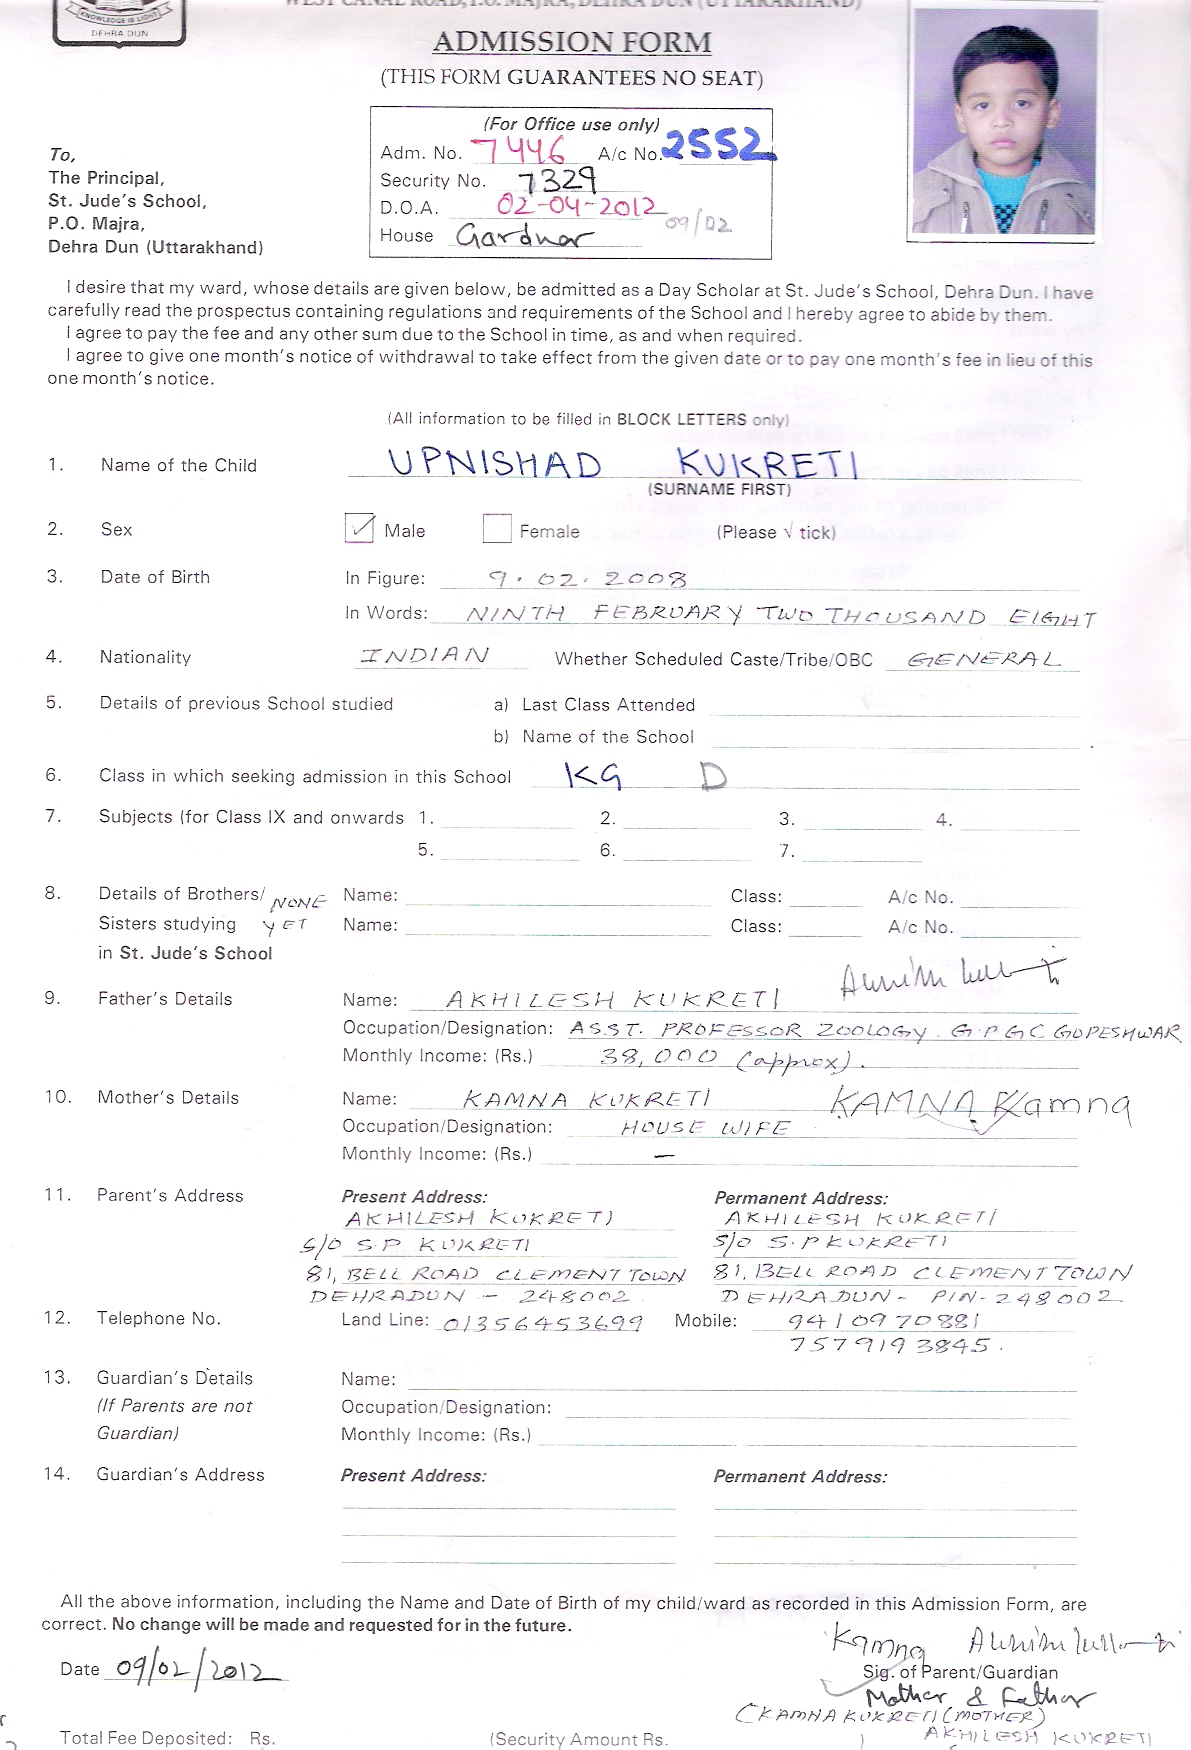 WEST CANAL ROAD, P.O. MAJRA, DEHRA DUN (UTTARAKHAND)
KNOWLEDGE IS LIGHT
DEHRA DUN
ADMISSION FORM
(THIS FORM GUARANTEES NO SEAT)
(For Office use only)
Adm. No. 7446 A/c No. 2552
Security No. 7329
D.O.A. 02-04-2012 09/02
House Gardnar
To,
The Principal,
St. Jude's School,
P.O. Majra,
Dehra Dun (Uttarakhand)
I desire that my ward, whose details are given below, be admitted as a Day Scholar at St. Jude's School, Dehra Dun. I have
carefully read the prospectus containing regulations and requirements of the School and I hereby agree to abide by them.
I agree to pay the fee and any other sum due to the School in time, as and when required.
I agree to give one month's notice of withdrawal to take effect from the given date or to pay one month's fee in lieu of this
one month's notice.
(All information to be filled in BLOCK LETTERS only)
1. Name of the Child UPNISHAD KUKRETI
(SURNAME FIRST)
2. Sex ✓ Male Female (Please √ tick)
3. Date of Birth In Figure: 9.02.2008
In Words: NINTH FEBRUARY TWO THOUSAND EIGHT
4. Nationality INDIAN Whether Scheduled Caste/Tribe/OBC GENERAL
5. Details of previous School studied a) Last Class Attended
b) Name of the School
6. Class in which seeking admission in this School KG D
7. Subjects (for Class IX and onwards 1. 2. 3. 4.
5. 6. 7.
8. Details of Brothers/ NONE Name: Class: A/c No.
Sisters studying YET Name: Class: A/c No.
in St. Jude's School
9. Father's Details Name: AKHILESH KUKRETI
Occupation/Designation: ASST. PROFESSOR ZOOLOGY. G.P G C GOPESHWAR
Monthly Income: (Rs.) 38,000 (approx).
10. Mother's Details Name: KAMNA KUKRETI KAMNA Kamna
Occupation/Designation: HOUSE WIFE
Monthly Income: (Rs.) —
11. Parent's Address Present Address: Permanent Address:
AKHILESH KUKRETI AKHILESH KUKRETI
S/O S.P KUKRETI S/O S.P KUKRETI
81, BELL ROAD CLEMENT TOWN 81, BELL ROAD CLEMENT TOWN
DEHRADUN - 248002 DEHRADUN - PIN-248002
12. Telephone No. Land Line: 01356453699 Mobile: 9410970881
7579193845.
13. Guardian's Details Name:
(If Parents are not Occupation/Designation:
Guardian) Monthly Income: (Rs.)
14. Guardian's Address Present Address: Permanent Address:
All the above information, including the Name and Date of Birth of my child/ward as recorded in this Admission Form, are
correct. No change will be made and requested for in the future.
Kamna
Date 09/02/2012 Sig. of Parent/Guardian
Mother & Father
(KAMNA KUKRETI (MOTHER)
AKHILESH KUKRETI
Total Fee Deposited: Rs. (Security Amount Rs. )